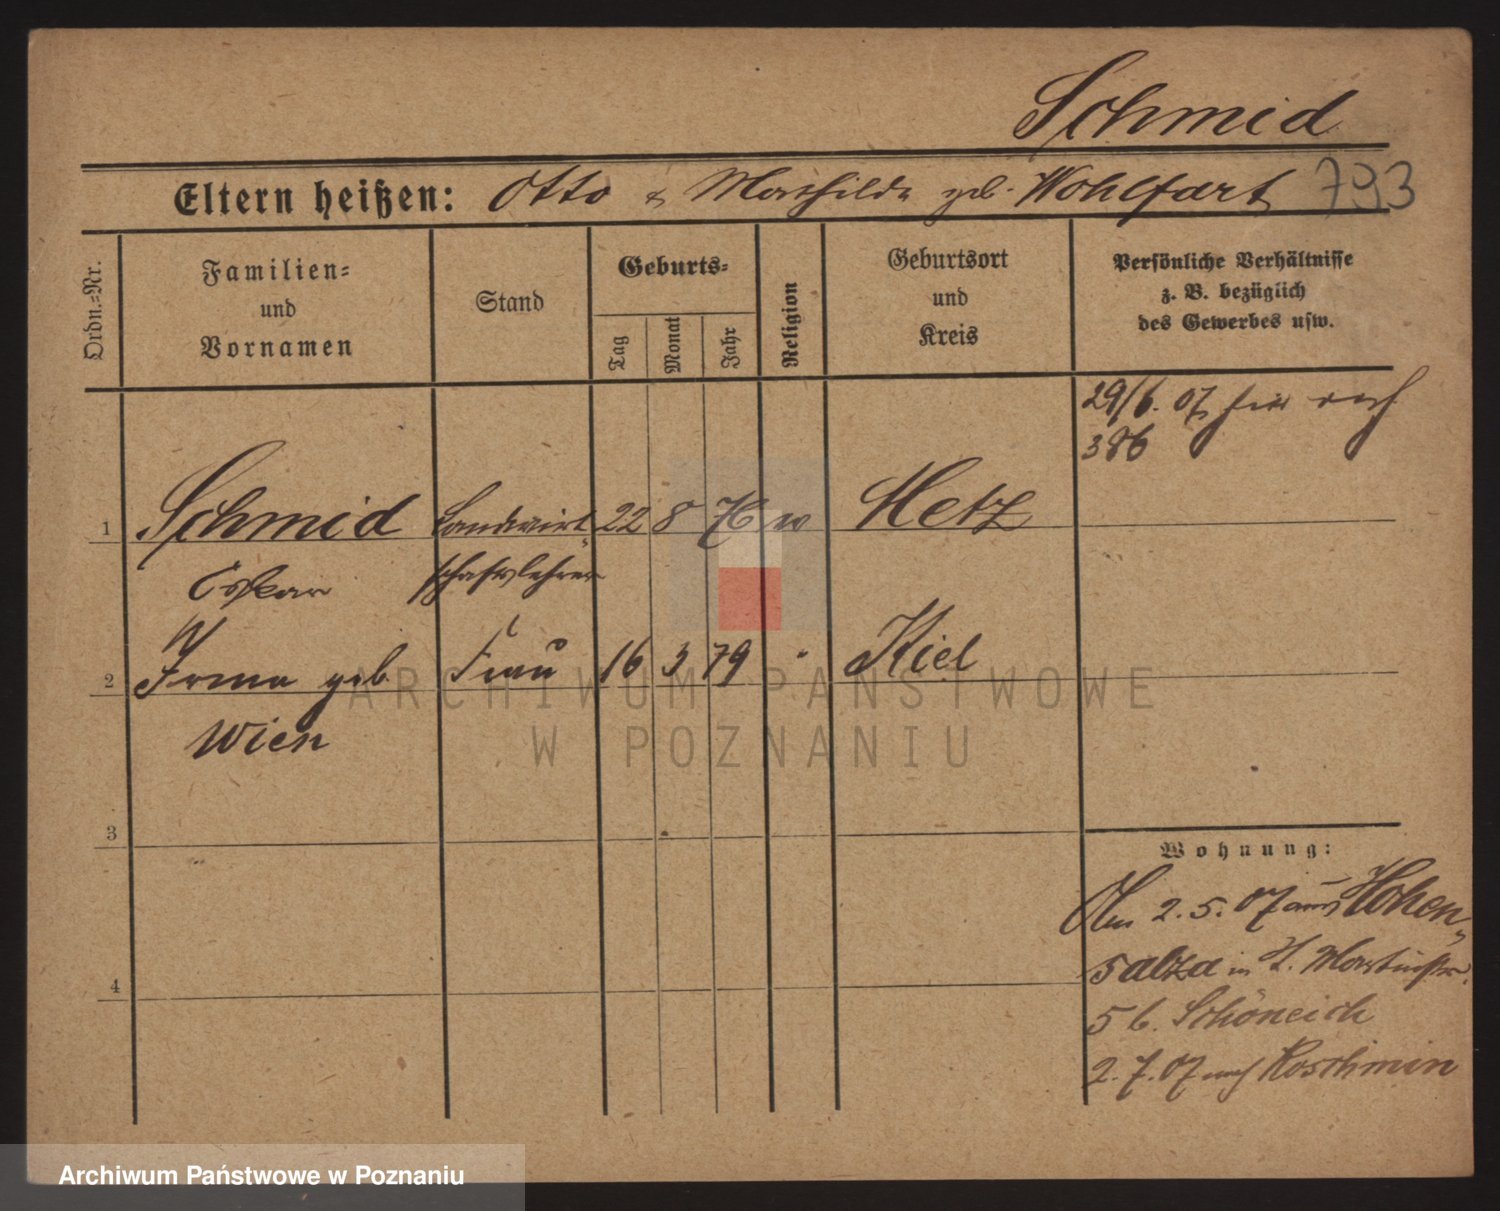 Schmid
Eltern heißen: Otto & Mathilde geb. Wohlfart 793
Ordn.-Nr.
Familien-
und
Vornamen
Stand
Geburts-
Tag
Monat
Jahr
Religion
Geburtsort
und
Kreis
Persönliche Verhältnisse
z. B. bezüglich
des Gewerbes usw.
29/6. 07
386
1 Schmid Landwirt 22 8 76 Metz
Oskar schaftslehrer
2 Irma geb Frau 16 3 79 " Kiel
Wien
3
4
Wohnung:
Am 2. 5. 07 aus Hohen
salza in
5 b. Schöneich
2. 7. 07 nach Koschmin
ARCHIWUM PAŃSTWOWE
W POZNANIU
Archiwum Państwowe w Poznaniu